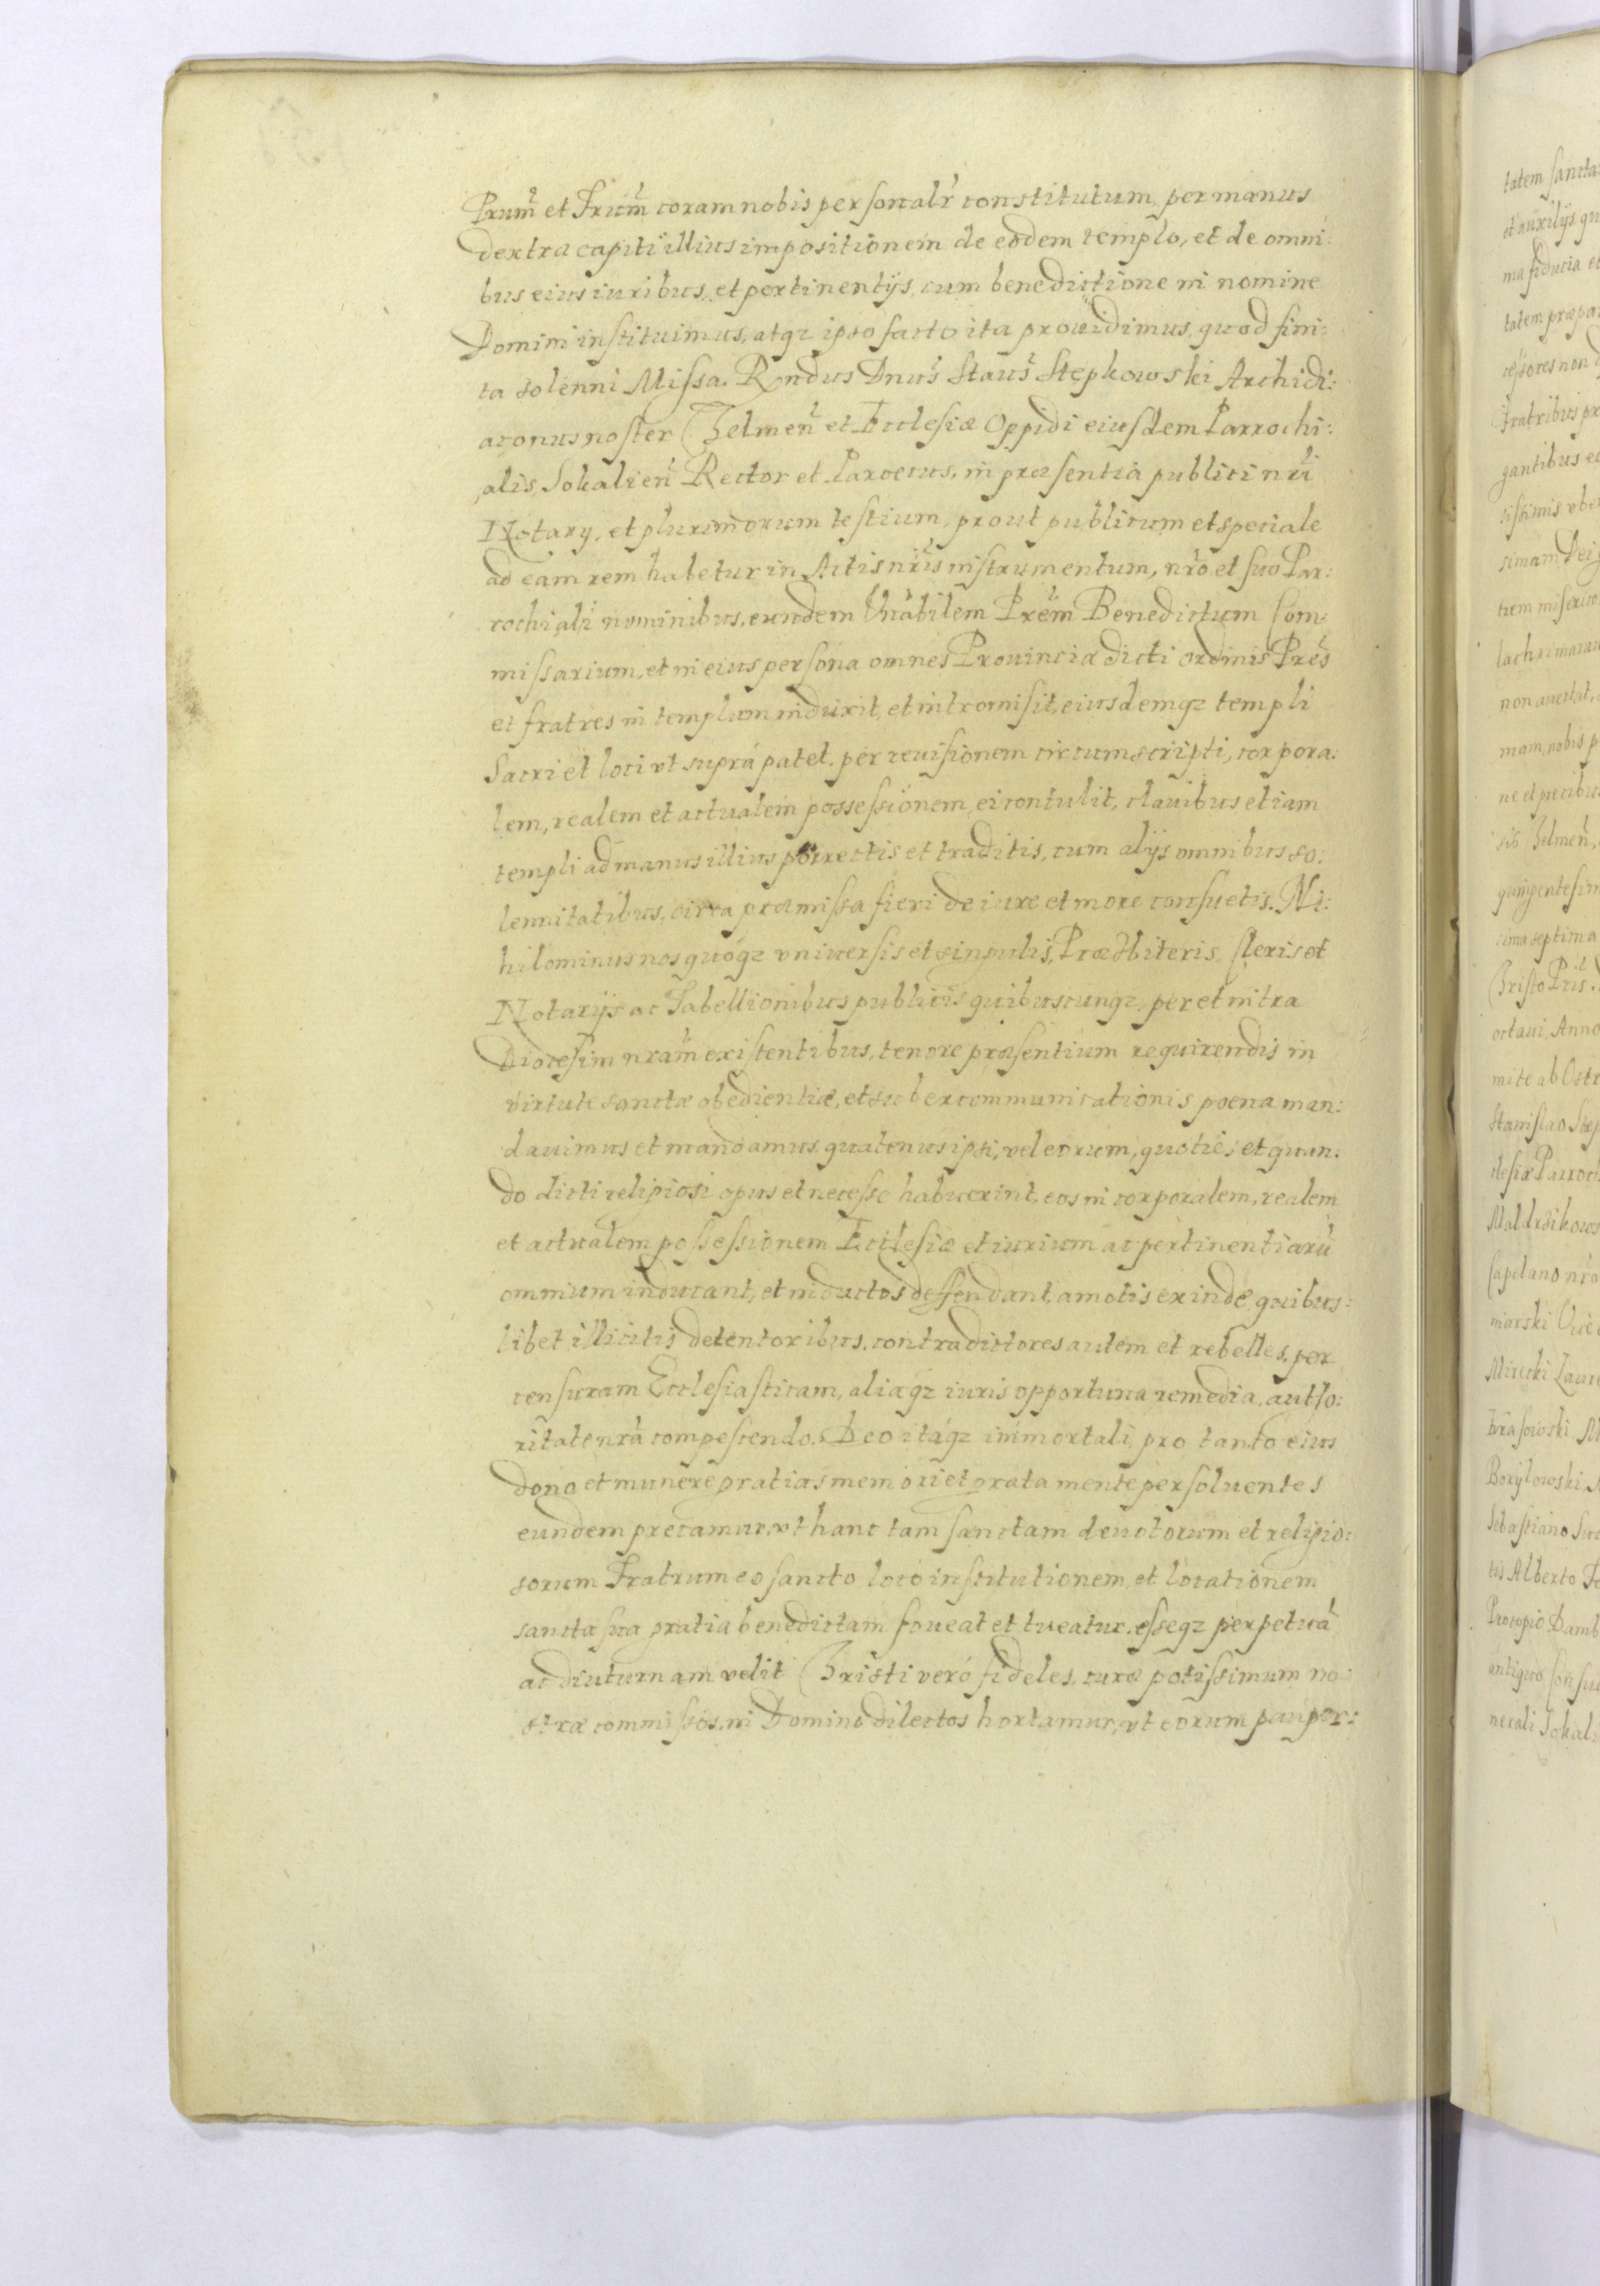 Prum̃ et Frum̃ coram nobis personalr̃ constitutum, per manus
dextræ capiti illius impositionem de eodem templo, et de omni:
bus eius iuribus, et pertinentijs, cum benedictione in nomine
Domini instituimus, atqz ipso facto ita prouidimus, quod fini:
ta solenni Missa. Rñdus Dnũs Staũs Stepkowski Archidi:
aconus noster Chelmeñ et Ecclesiæ Oppidi eiusdem Parrochi:
alis Sokalieñ Rector et Paroecus, in præsentia publici nr̃i
Notarij, et plurimorum testium, prout publicum et speciale
ad eam rem habetur in Actis nr̃is instrumentum, nr̃o et suo Par:
rochiali nominibus, eundem Vnãbilem Prẽm Benedictum Com:
missarium, et in eius persona omnes Prouinciæ dicti ordinis Prẽs
et fratres in templum induxit, et intromisit, eiusdemqz templi
Sacri et loci vt suprà patet, per reuisionem circumscripti, corpora:
lem, realem et actualem possessionem, ei contulit, clauibus etiam
templi ad manus illius porrectis et traditis, cum alijs omnibus so:
lennitatibus, circa præmissa fieri de iure et more consuetis. Ni:
hilominus nos quoqz vniuersis et singulis, Præsbiteris, Cleris et
Notarijs ac Tabellionibus publicis quibuscunqz, per et intra
Diocesim nrãm existentibus, tenore præsentium requirendis in
virtute sanctæ obedientiæ, et sub excommunicationis poena man:
dauimus et mandamus, quatenus ipsi, vel eorum, quoties et quan:
do dicti religiosi opus et necesse habuerint, eos in corporalem, realem
et actualem possessionem Ecclesiæ et iurium ac pertinentiarũ
omnium inducant, et inductos deffendant, amotis exinde, quibus:
libet illicitis detentoribus, contradictores autem et rebelles, per
censuram Ecclesiasticam, aliaqz iuris opportuna remedia, autho:
ritate nrã compescendo. Deo itáqz immortali, pro tanto eius
dono et munere gratias memori et grata mente persoluentes
eundem precamur, vt hanc tam sanctam deuotorum et religio:
sorum Fratrum eo sancto loco institutionem, et locationem
sancta sua gratia benedictam foueat et tueatur, esseqz perpetuã
ac diuturnam velit. Christi veró fideles, curæ potissimum no:
stræ commissos, in Domino dilectos hortamur, vt eorum pauper: